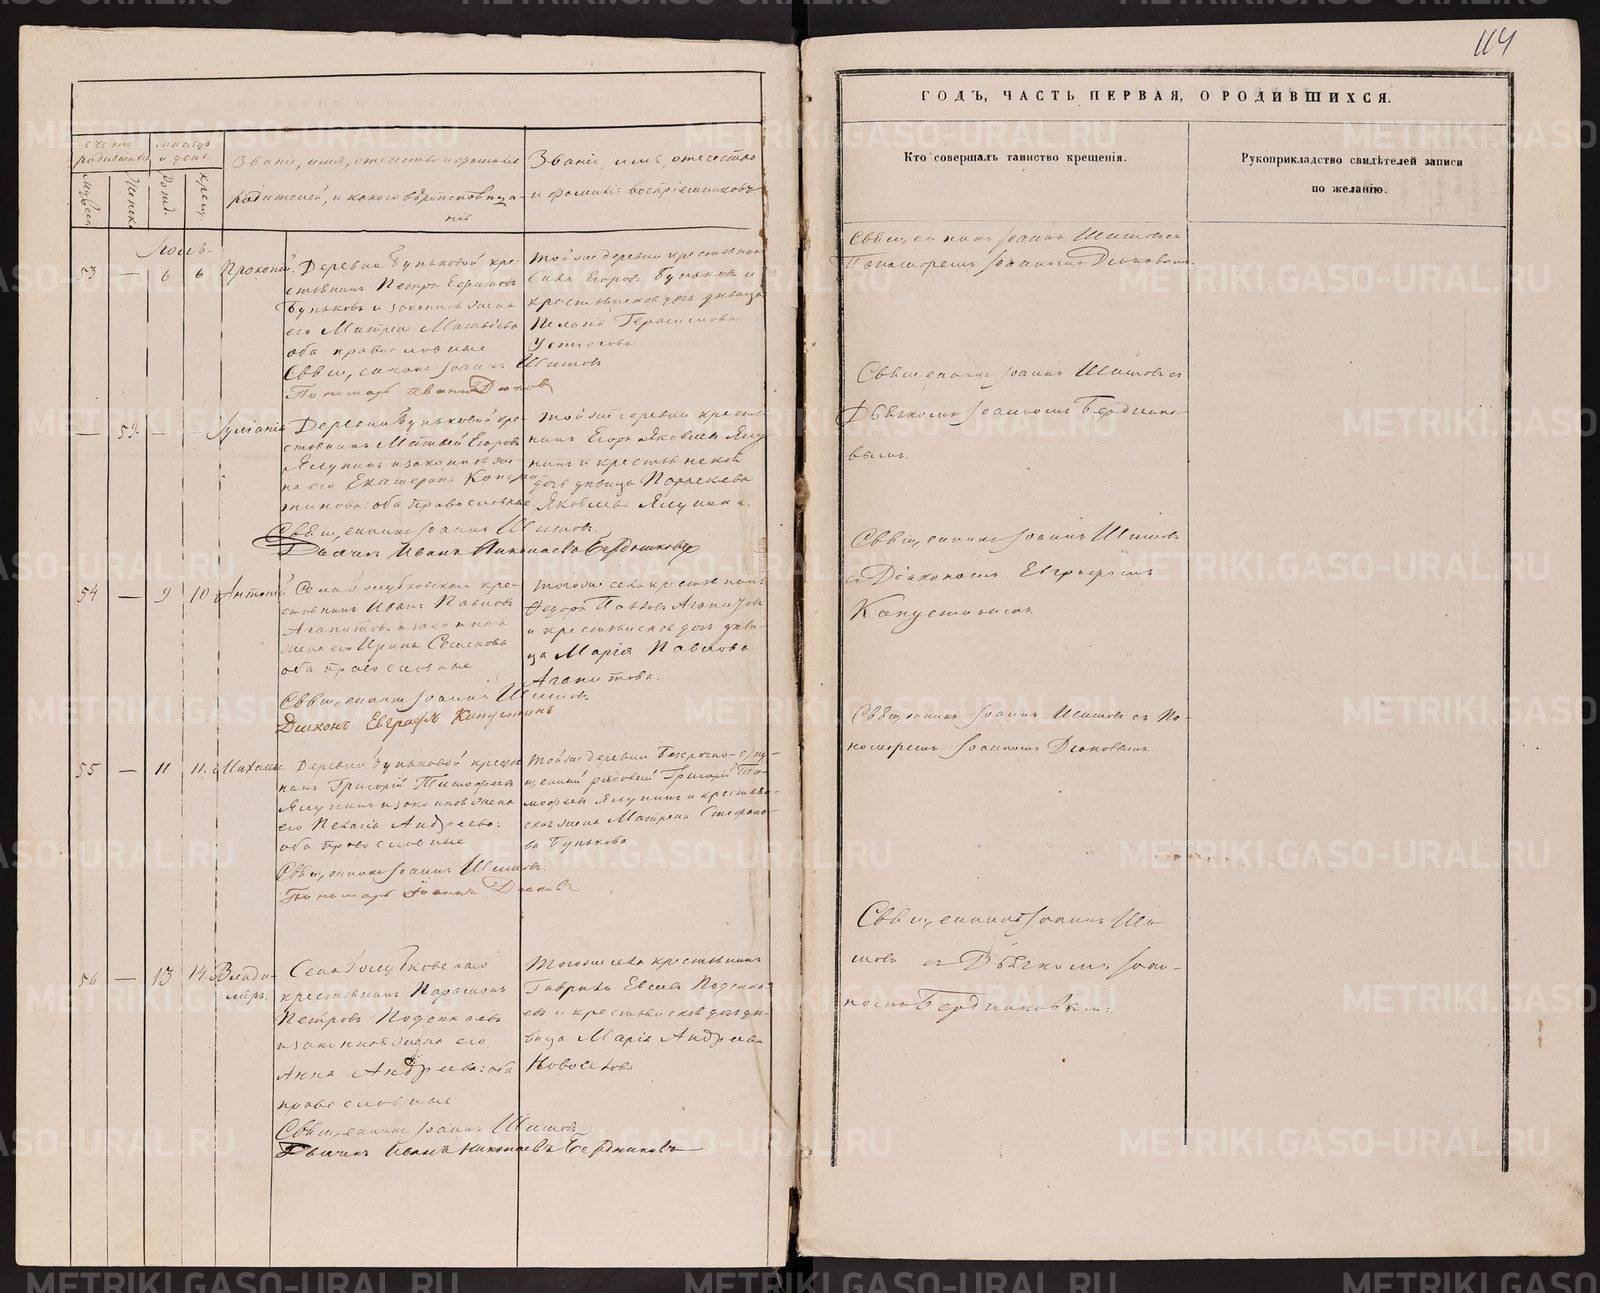 114
ГОДЪ, ЧАСТЬ ПЕРВАЯ, О РОДИВШИХСЯ.
Счетъ родившихся
Мѣсяцъ и день
Званіе, имя, отчество и фамилія
родителей, и какого вѣроисповѣда-
нія
Званіе, имя, отечество
и фамилія воспріемниковъ.
Кто совершалъ таинство крещенія.
Рукоприкладство свидѣтелей записи
по желанію.
Іюль.
53 — 6 6 Прокопій
Деревни Буньковой кре-
стьянинъ Петръ Ефимовъ
Буньковъ и законная жена
его Матвѣева
оба православные
Священникъ Іоаннъ Шишовъ
Пономарь Иванъ Дюковъ
Той же деревни крестьянинъ
Егоровъ Буньковъ и
крестьянская дочь дѣвица
Пелагія Герасимова
Устюгова
Священникъ Іоаннъ Шишовъ съ
Пономаремъ Іоанномъ Дюковымъ.
— 59. — — Іуліанія
Деревни Буньковой кре-
стьянинъ Матвей Егоровъ
Ялунинъ и законная же-
на его Екатерина
оба православные
Священникъ Іоаннъ Шишовъ.
Дьячекъ Иванъ Николаевъ Бердниковъ
Той же деревни крестья-
нинъ Егоръ Яковлевъ Ялу-
нинъ и крестьянская
дочь дѣвица Параскева
Яковлева Ялунина.
Священникъ Іоаннъ Шишовъ съ
Дьячкомъ Іоанномъ Бердни-
ковымъ.
54 — 9 10 Антоній
Села Голубковскаго кре-
стьянинъ Иванъ Павловъ
Агапитовъ и законная
жена его Ирина Семенова
оба православные
Священникъ Іоаннъ Шишовъ
Діаконъ Евграфъ Капустинъ
Того же села крестьянинъ
Федоръ Павловъ Агапитовъ
и крестьянская дочь дѣви-
ца Марія Павлова
Агапитова.
Священникъ Іоаннъ Шишовъ
съ Діакономъ Евграфомъ
Капустинымъ
55 — 11 11. Михаилъ
Деревни Буньковой крестья-
нинъ Григорій Тимофеевъ
Ялунинъ и законная жена
его Пелагія Андреева:
оба православные
Священникъ Іоаннъ Шишовъ.
Пономарь Іоаннъ Дюковъ
Той же деревни Безсрочно-отпу-
щенный рядовой Григорій Ти-
мофеевъ Ялунинъ и крестьян-
ская жена Матрена Стефано-
ва Бунькова
Священникъ Іоаннъ Шишовъ съ По-
номаремъ Іоанномъ Дюковымъ.
56 — 13 14. Влади-
міръ.
Села Голубковскаго
крестьянинъ
Петровъ
и законная жена его
Анна Андреева: оба
православные
Священникъ Іоаннъ Шишовъ
Дьячекъ Иванъ Николаевъ Бердниковъ
Того же села крестьянинъ
Гаврилъ Евсеевъ
и крестьянская дочь дѣ-
вица Марія Андреева
Новоселова
Священникъ Іоаннъ Ши-
шовъ съ Дьячкомъ Іоан-
номъ Бердниковымъ.
METRIKI.GASO-URAL.RU